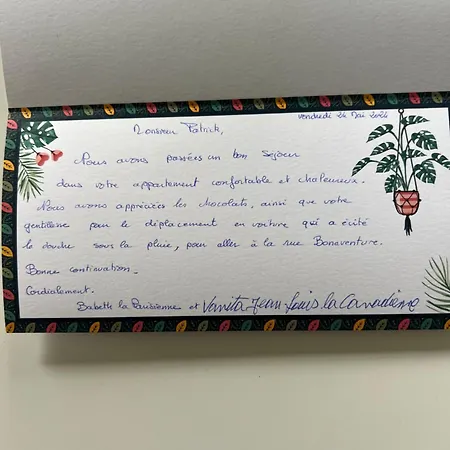 vendredi 24 Mai 2024
Monsieur Patrick,
Nous avons passées un bon séjour
dans votre appartement confortable et chaleureux.
Nous avons appréciées les chocolats, ainsi que votre
gentillesse pour le déplacement en voiture qui a évité
la douche sous la pluie, pour aller à la rue Bonaventure.
Bonne continuation.
Cordialement.
Babeth la Parisienne et Vanita Jean-Louis la Canadienne